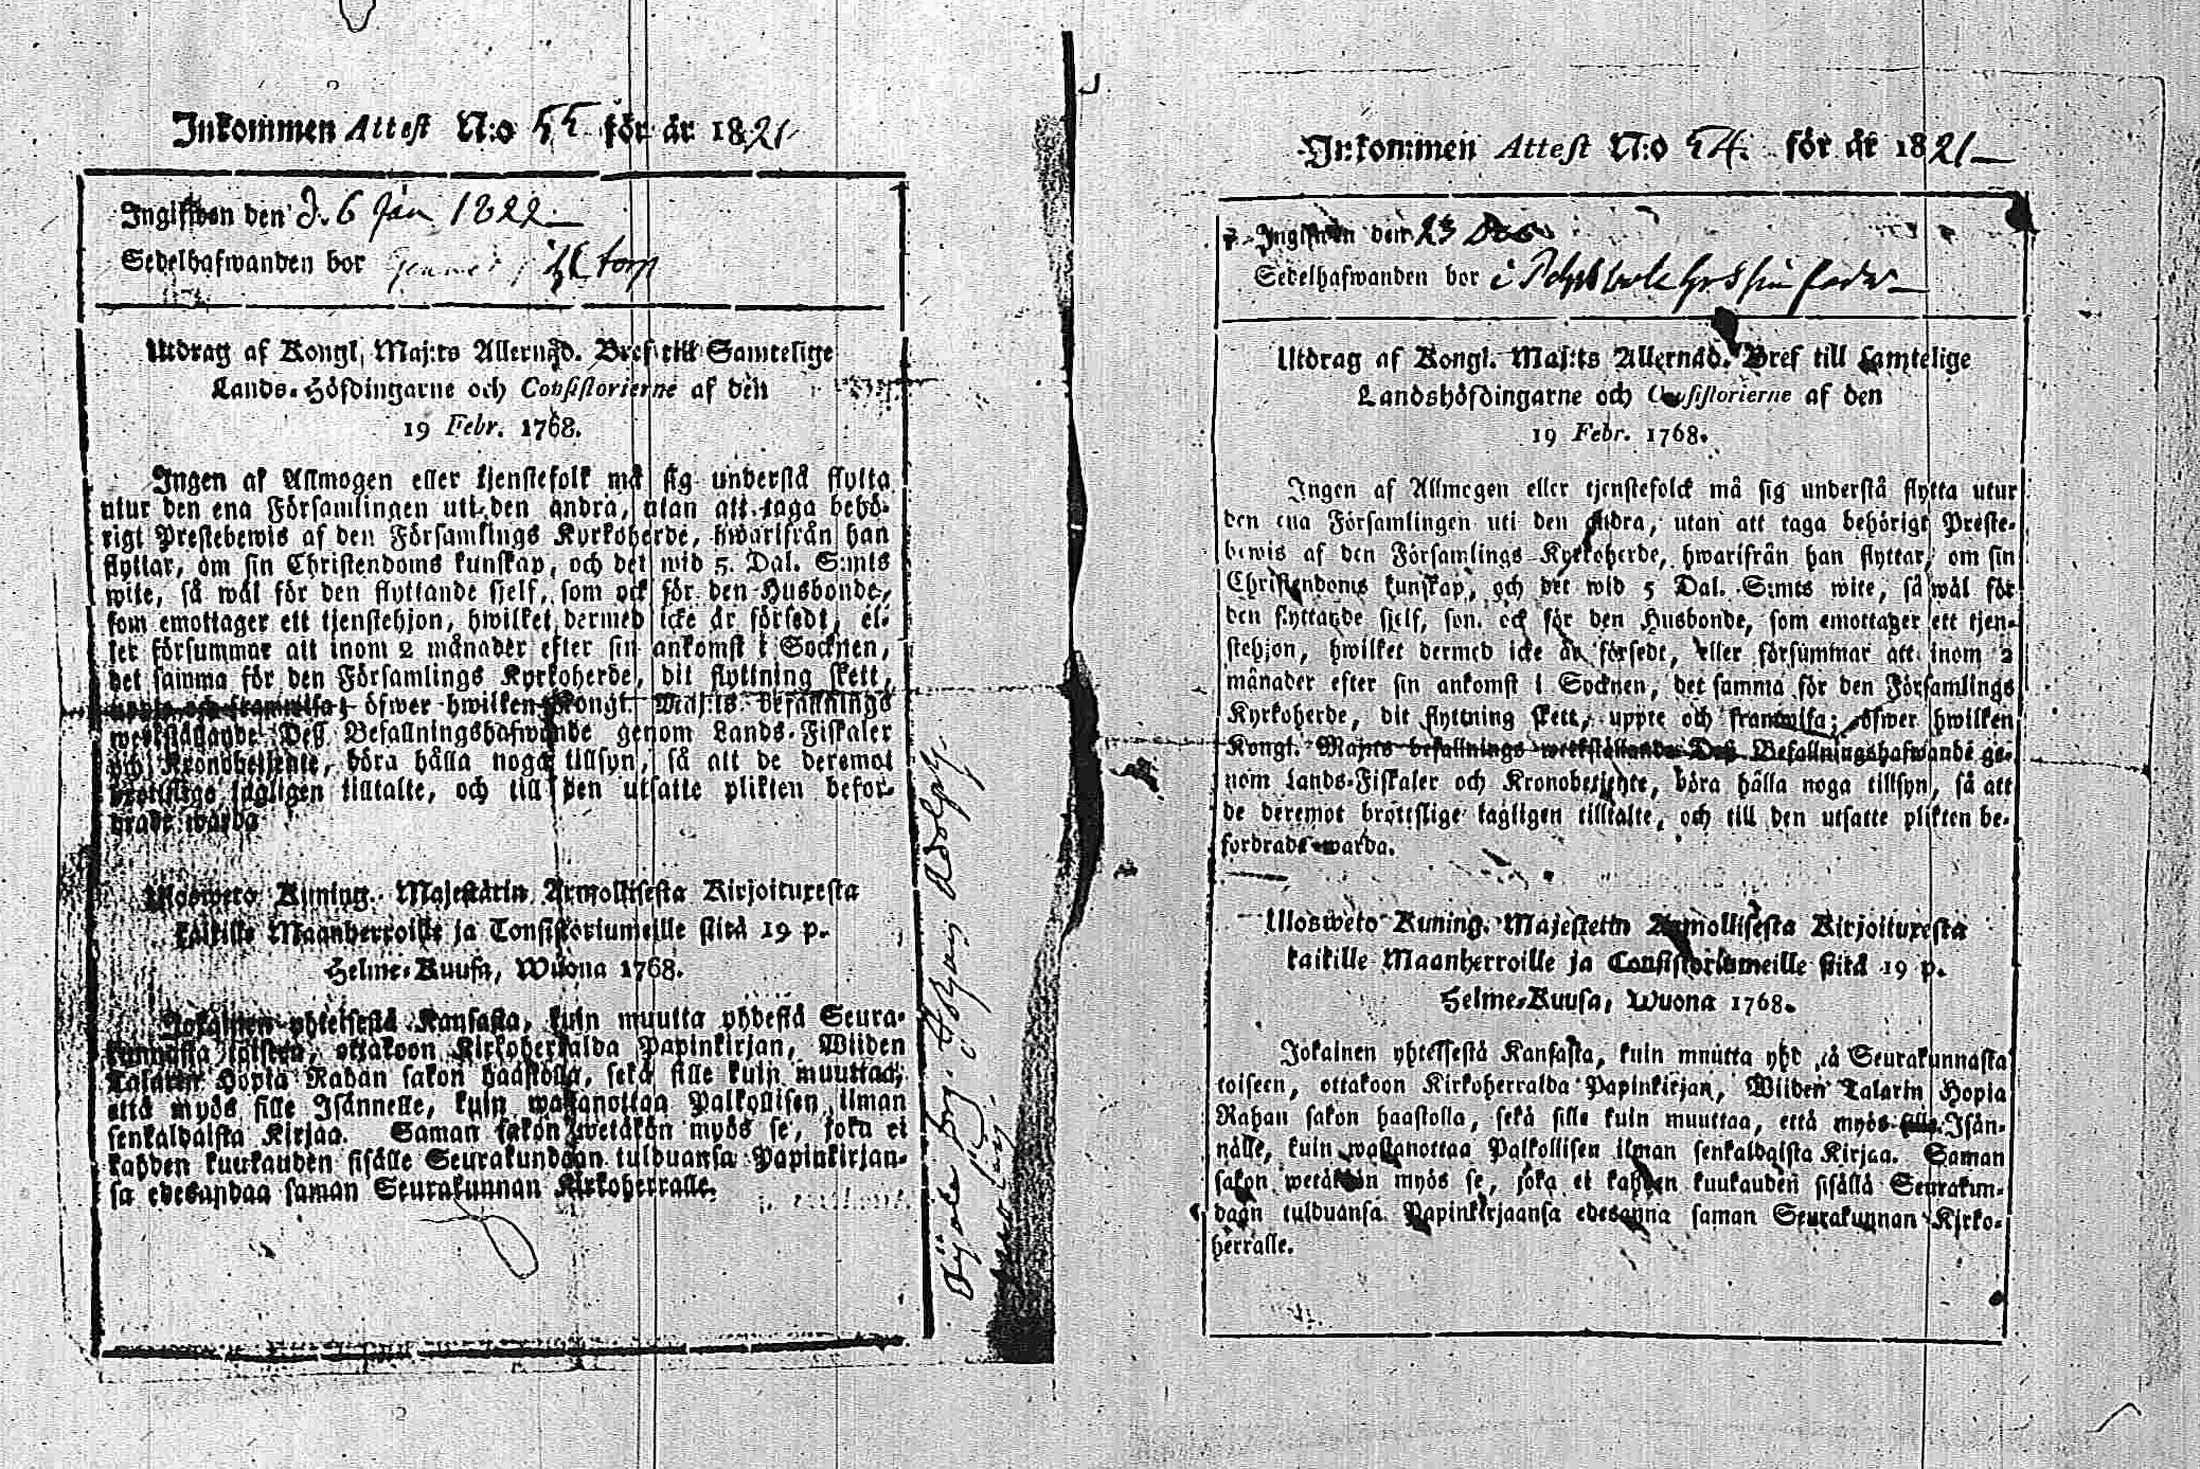 Inkommen Attest N:o 55 för år 1821
Ingifwen den d. 6 Jan 1822
Sedelhafwanden bor torp
Utdrag af Kongl. Maj:ts Allernåd. Bref till Samtelige
Lands-Höfdingarne och Consistorierne af den
19 Febr. 1768.
Ingen af Allmogen eller tjenstefolk må sig understå flytta
utur den ena Församlingen uti den andra, utan att taga behö-
rigt Prestebewis af den Församlings Kyrkoherde, hwarifrån han
flyttar, om sin Christendoms kunskap, och det wid 5. Dal. S:mts
wite, så wäl för den flyttande sjelf, som ock för den Husbonde,
som emottager ett tjenstehjon, hwilket dermed icke är försedt, el-
ler försummar att inom 2 månader efter sin ankomst i Socknen,
det samma för den Församlings Kyrkoherde, dit flyttning skett,
uppte och framwisa; öfwer hwilken Kongl. Maj:ts befallnings
werkställande Deß Befallningshafwande genom Lands-Fiskaler
och Kronobetjente, böra hålla noga tillsyn, så att de deremot
brottslige lagligen tilltalte, och till den utsatte plikten befor-
drade warda
Ulosweto Kuning. Majestätin Armollisesta Kirjoituxesta
kaikille Maanherroille ja Consistoriumeille siitä 19 p.
Helme-Kuusa, Wuona 1768.
Jokainen yhteisestä Kansasta, kuin muutta yhdestä Seura-
kunnasta toiseen, ottakoon Kirkoherralda Papinkirjan, Wiiden
Talarin Hopia Rahan sakon haastolla, sekä sille kuin muuttaa,
että myös sille Isännelle, kuin wastanottaa Palkollisen ilman
senkaldaista Kirjaa. Saman sakon wetäkön myös se, joka ei
kahden kuukauden sisälle Seurakundaan tulduansa Papinkirjan-
sa edesandaa saman Seurakunnan Kirkoherralle.
Adolph
Inkommen Attest N:o 54. för år 1821
Ingifwen den 23 Dec
Sedelhafwanden bor i
Utdrag af Kongl. Maj:ts Allernåd. Bref till samtelige
Landshöfdingarne och Consistorierne af den
19 Febr. 1768.
Ingen af Allmogen eller tjenstefolck må sig understå flytta utur
den ena Församlingen uti den andra, utan att taga behörigt Preste-
bewis af den Församlings Kyrkoherde, hwarifrån han flyttar, om sin
Christendoms kunskap, och det wid 5 Dal. S:mts wite, så wäl för
den flyttande sjelf, som ock för den Husbonde, som emottager ett tjen-
stehjon, hwilket dermed icke är försedt, eller försummar att inom 2
månader efter sin ankomst i Socknen, det samma för den Församlings
Kyrkoherde, dit flyttning skett, uppte och framwisa; öfwer hwilken
Kongl. Maj:ts befallnings werkställande Deß Befallningshafwande ge-
nom Lands-Fiskaler och Kronobetjente, böra hålla noga tillsyn, så att
de deremot brottslige lagligen tilltalte, och till den utsatte plikten be-
fordrade warda.
Ulosweto Kuning. Majestetin Armollisesta Kirjoituxesta
kaikille Maanherroille ja Consistoriumeille siitä 19 p.
Helme-Kuusa, Wuona 1768.
Jokainen yhteisestä Kansasta, kuin muutta Seurakunnasta
toiseen, ottakoon Kirkoherralda Papinkirjan, Wiiden Talarin Hopia
Rahan sakon haastolla, sekä sille kuin muuttaa, että myös sille Isän-
nälle, kuin wastanottaa Palkollisen ilman senkaldaista Kirjaa. Saman
sakon wetäkön myös se, joka ei kahden kuukauden sisällä Seurakun-
daan tulduansa Papinkirjaansa edesanna saman Seurakunnan Kirko-
herralle.